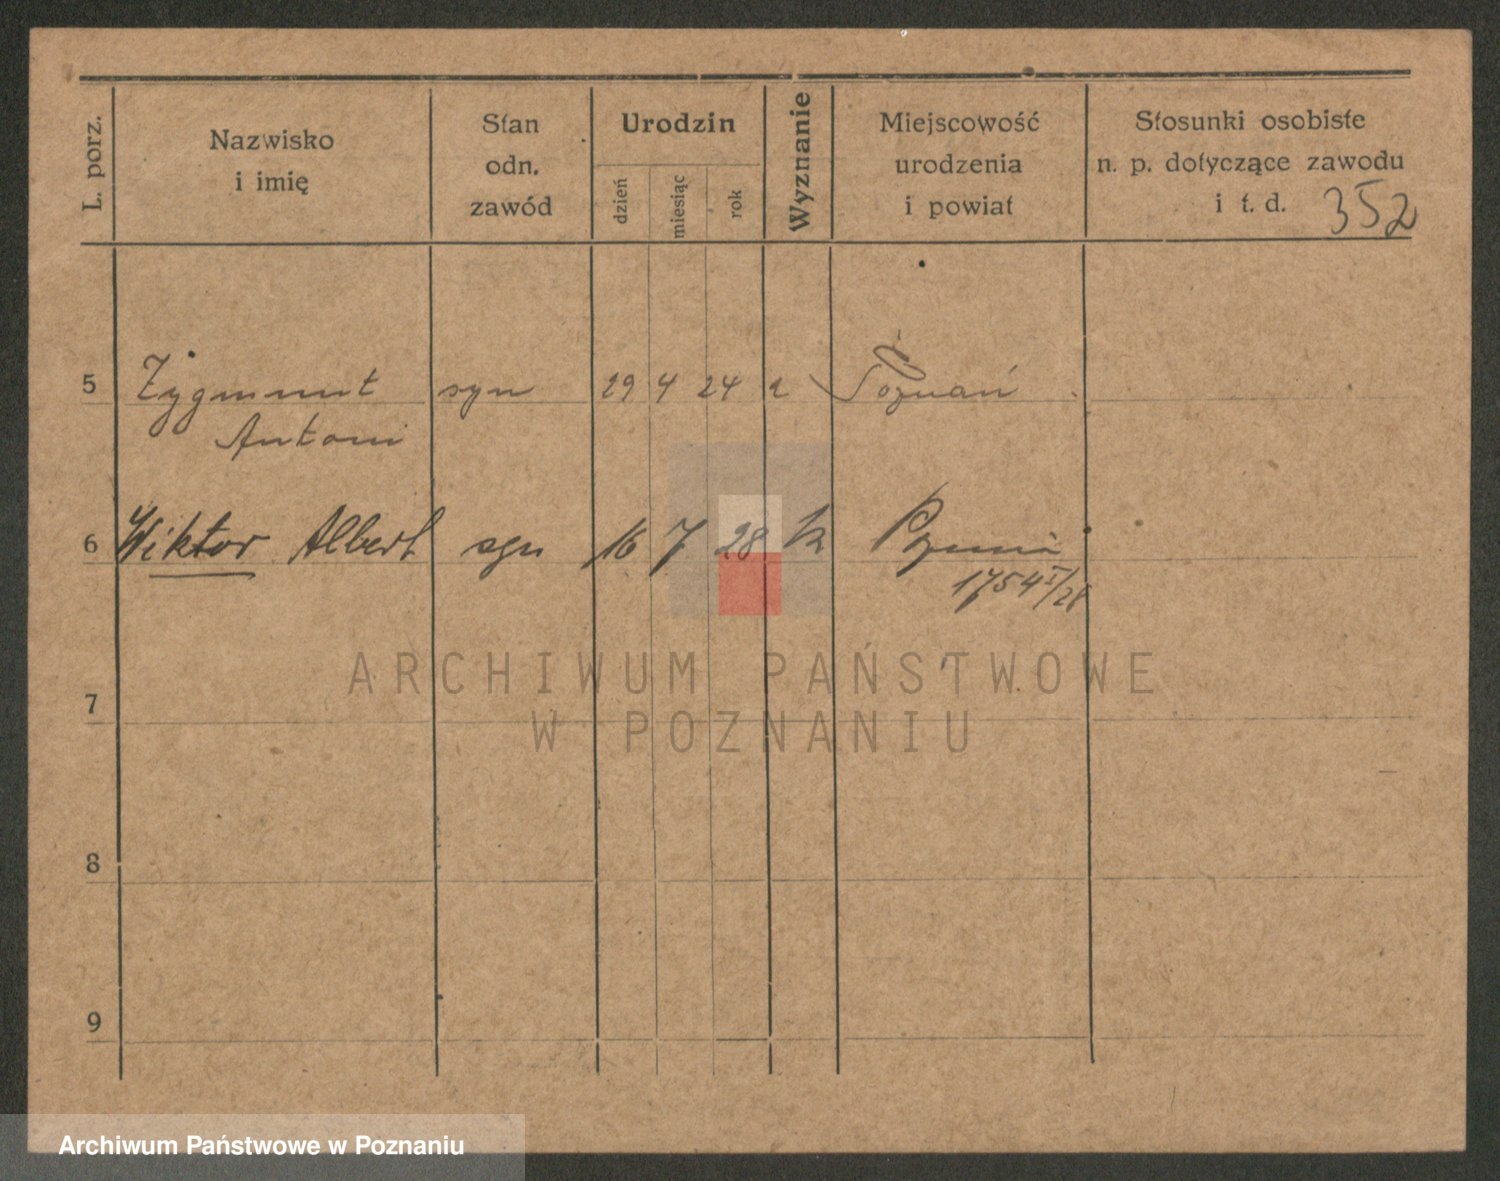 L. porz.
Nazwisko
i imię
Stan
odn.
zawód
Urodzin
dzień
miesiąc
rok
Wyznanie
Miejscowość
urodzenia
i powiat
Stosunki osobiste
n. p. dotyczące zawodu
i t. d. 352
5 Zygmunt syn 29 4 24 Poznań
Antoni
6 Wiktor Albert syn 16 7 28 k
1754 I/28
ARCHIWUM PAŃSTWOWE
W POZNANIU
7
8
9
Archiwum Państwowe w Poznaniu